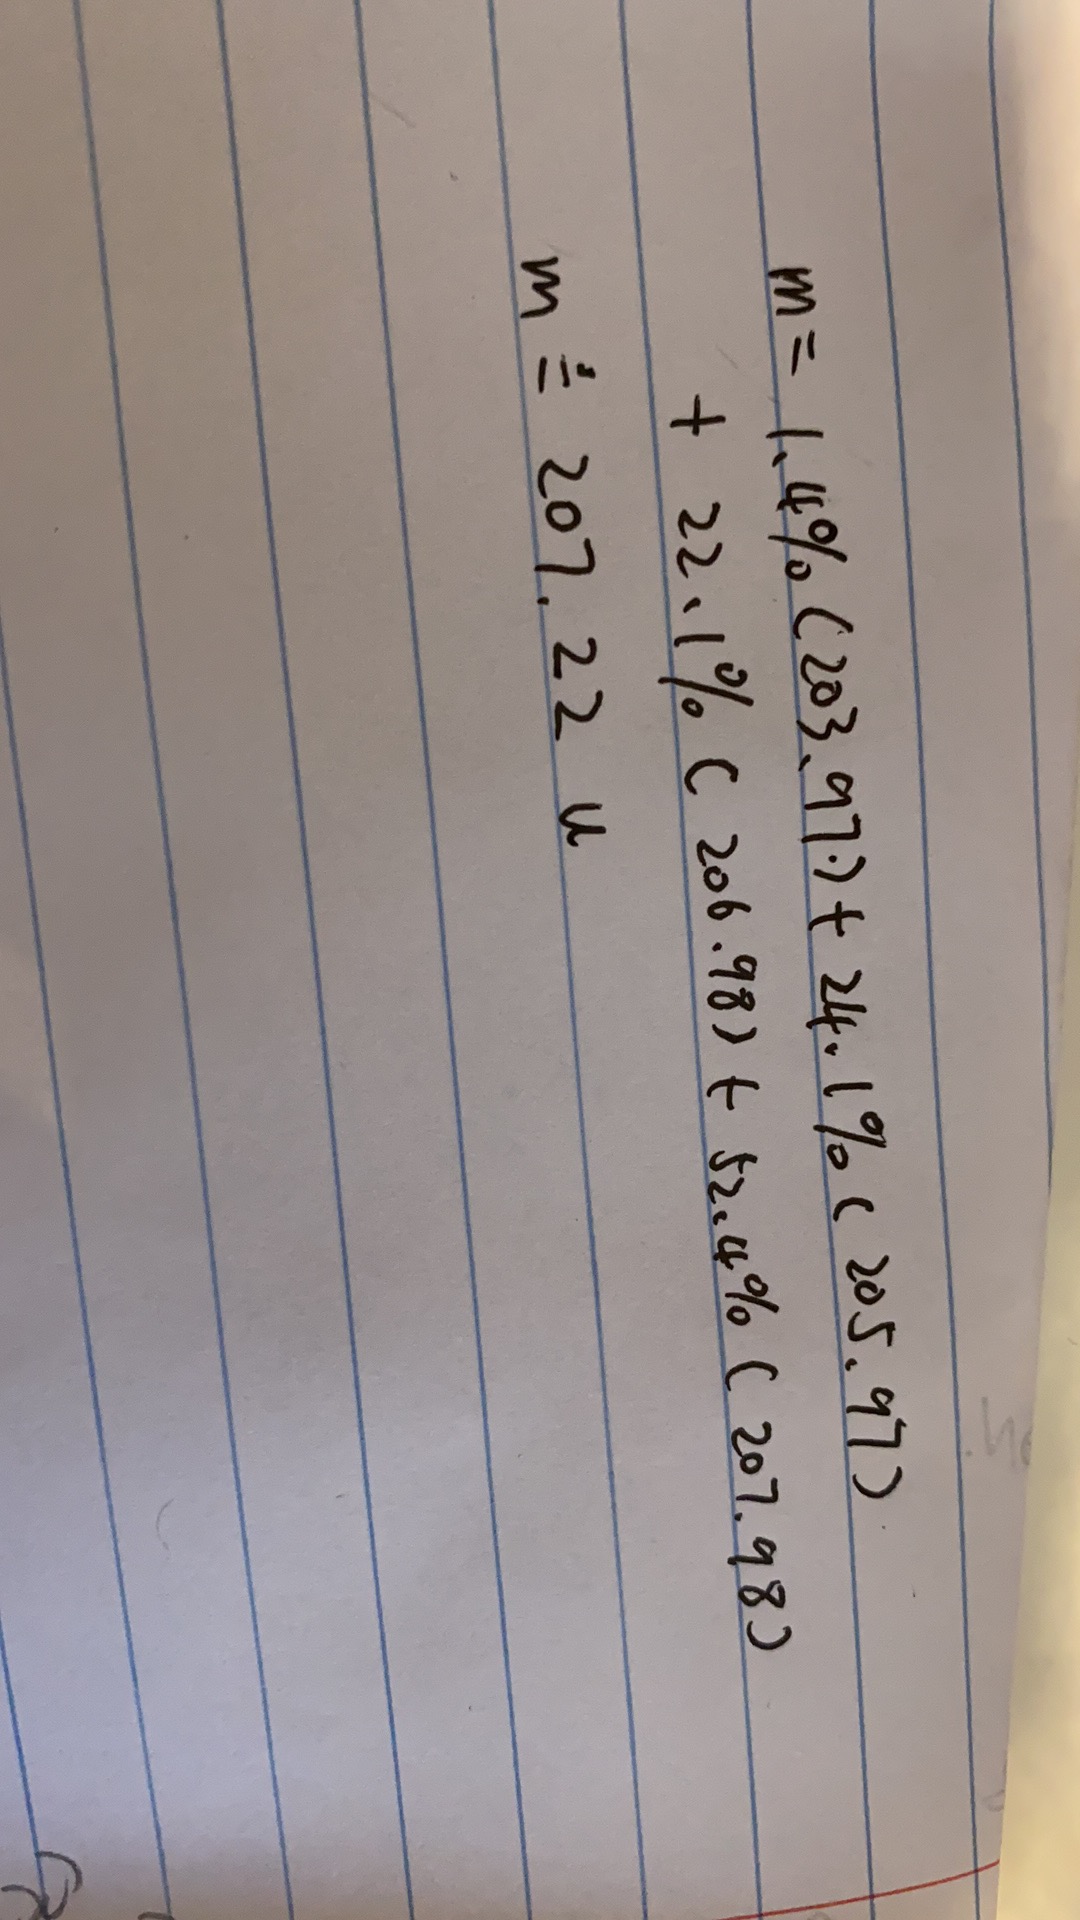 m = 1.4% (203.97) + 24.1% (205.97)
+ 22.1% (206.98) + 52.4% (207.98)
m ≐ 207.22 u